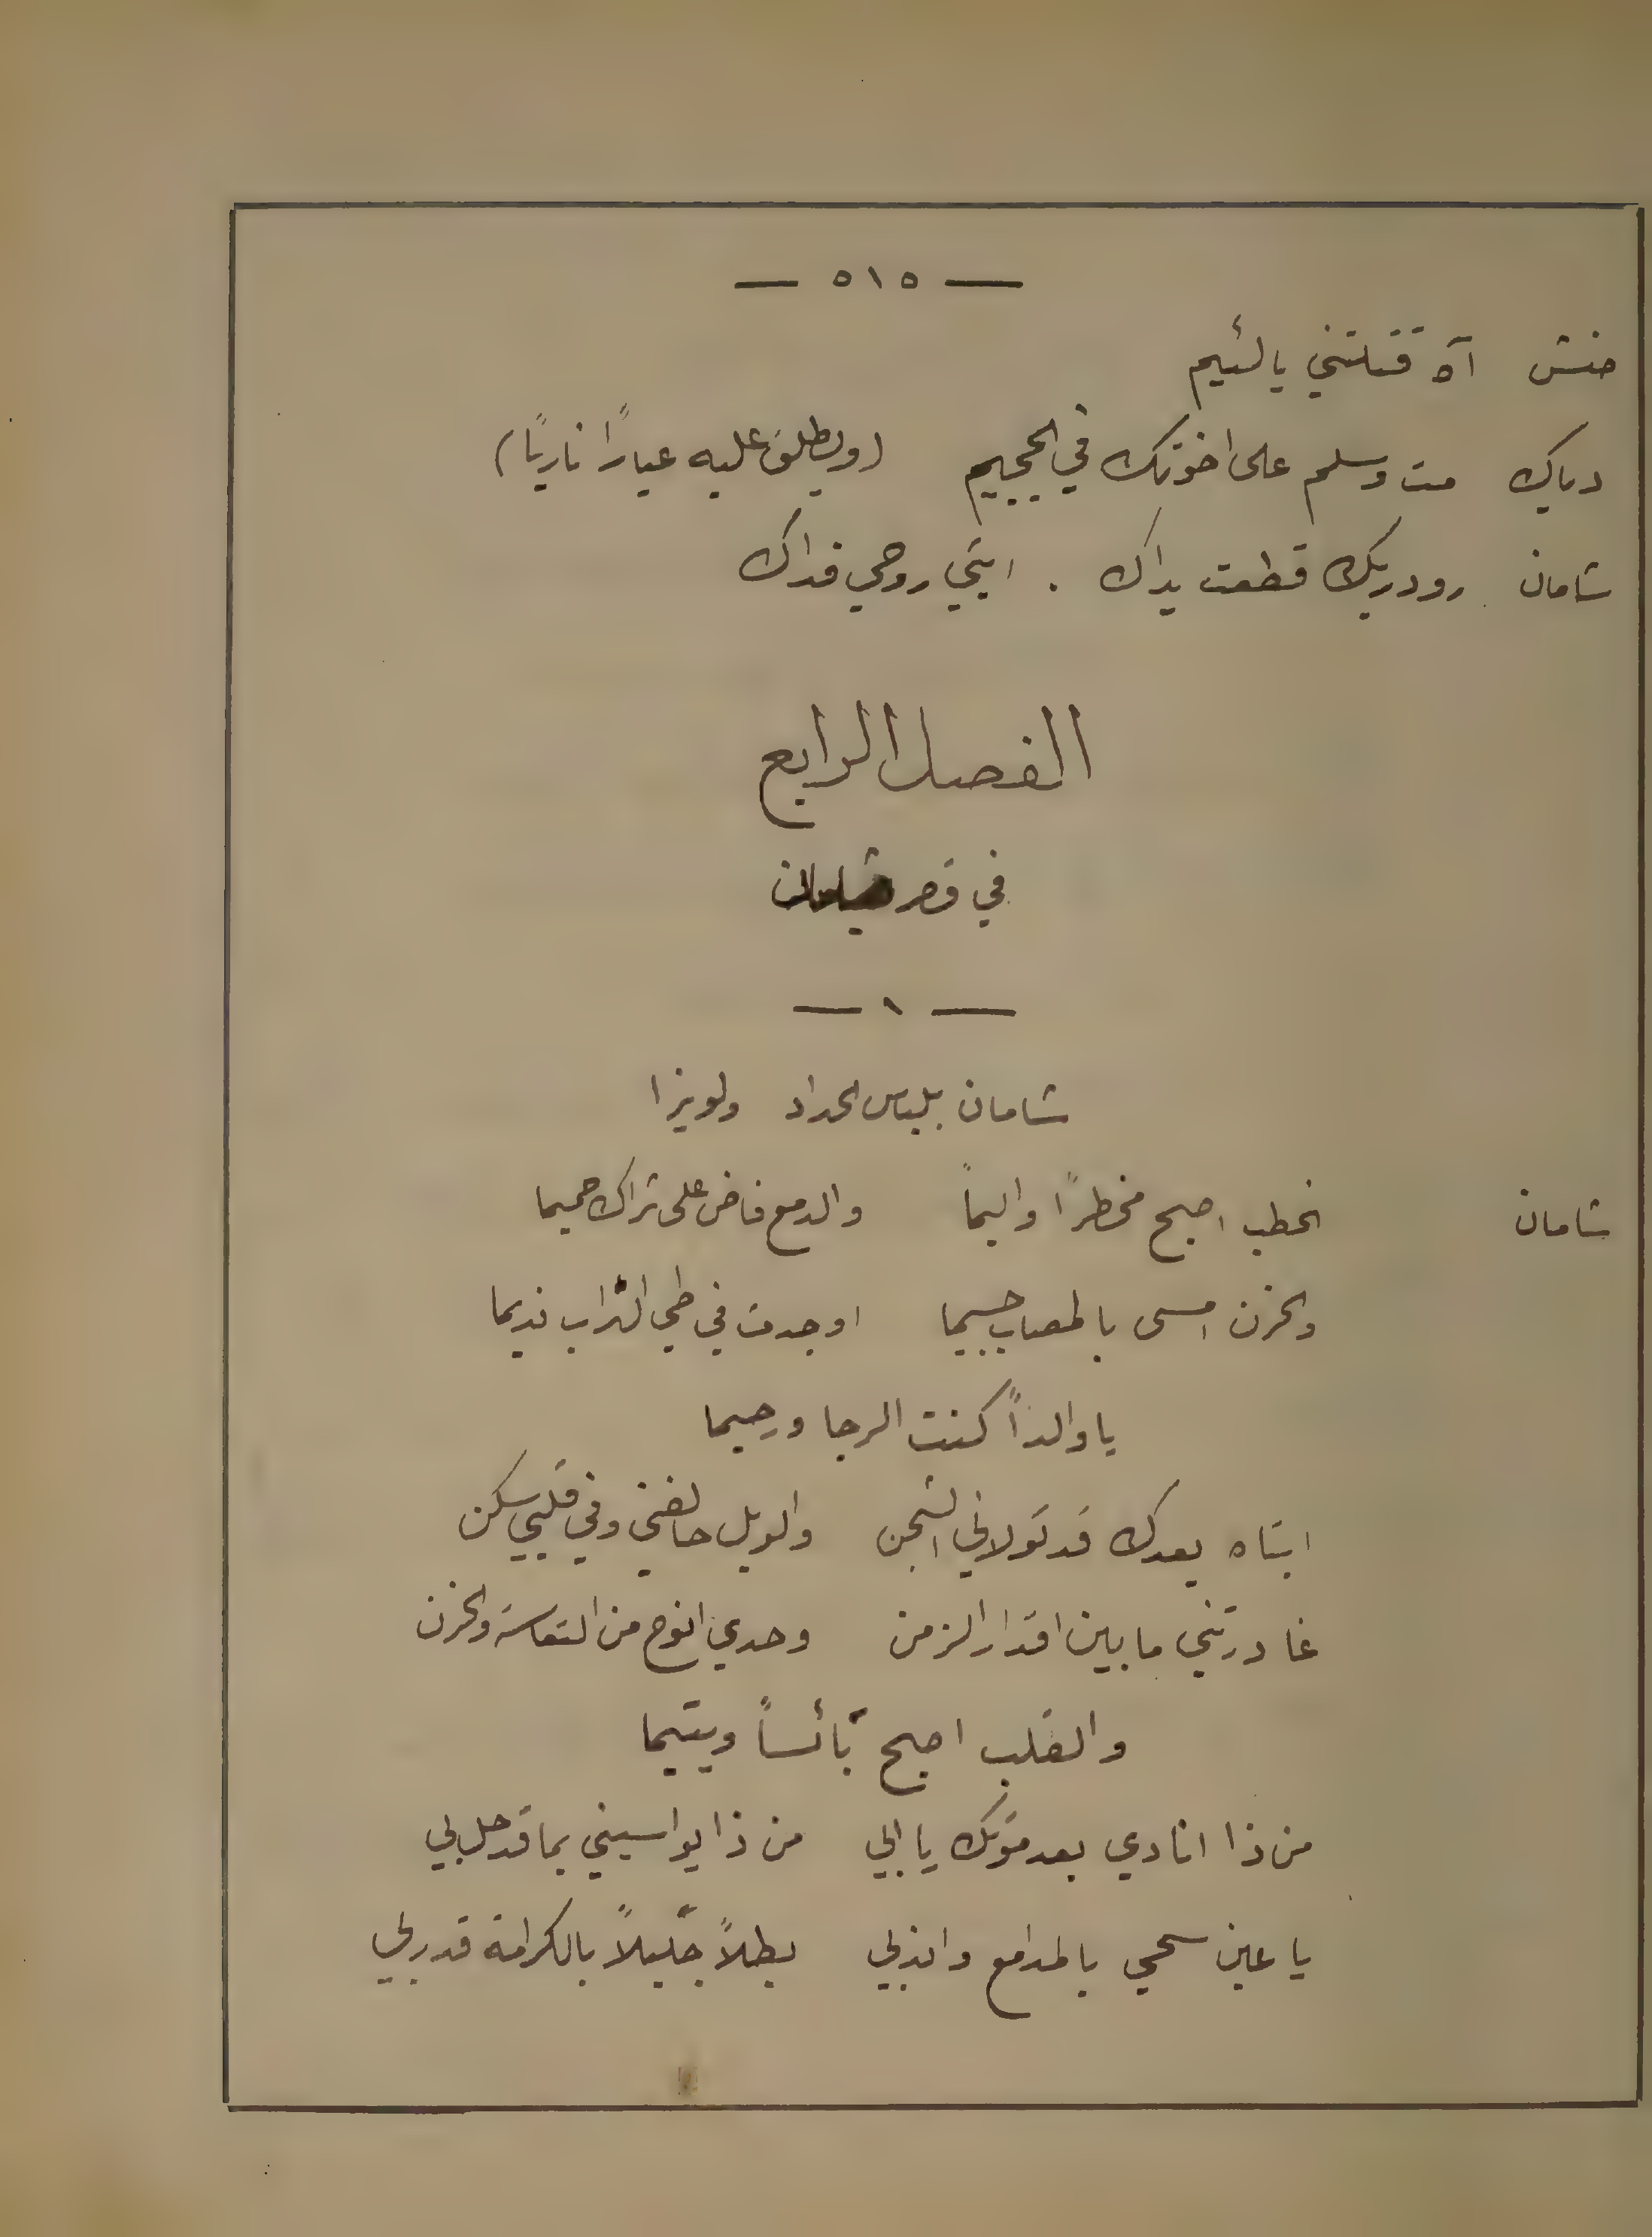 — ٥١٥ —
حنش آه قتلتني يالئيم
دباك مت وسلم على اخوتك في الجحيم (ويطلق عليه عيارًا ناريًا)
شامان رودريك قطعت يداك . ابتي روحي فداك
الفصل الرابع
في قصر
— ١ —
شامان بلباس الحداد ولويزا
شامان الخطب اصبح مخطرًا واليمًا والدمع فاض على ثراك حميما
والحزن امسى بالمصاب جسيما اوجدت في طي التراب نديما
يا والدًا كنت الرجا ورحيما
ابتاه بعدك قد تولاني الشجن والويل حالفني وفي قلبي سكن
غادرتني ما بين اقدار الزمن وحدي انوح من التعاسة والحزن
والقلب اصبح بائسًا ويتيما
من ذا انادي بعد موتك يا ابي من ذا يواسيني بما قد حل بي
يا عين سحي بالمدامع واندبي بطلاً جليلاً بالكرامة قد ربي